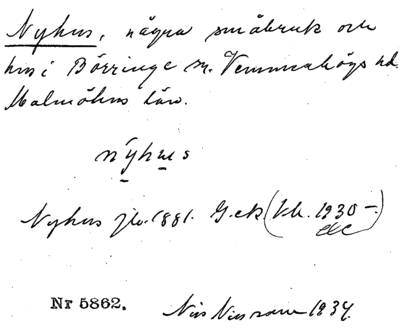 Nyhus, några småbruk och
hus i Börringe sn. Vemmenhögs hd.
Malmöhus län.
nýhus
Nyhus jb. 1881. G.ek (kh. 1930 –.)
Nr 5862. Nils Nilsson 1934.